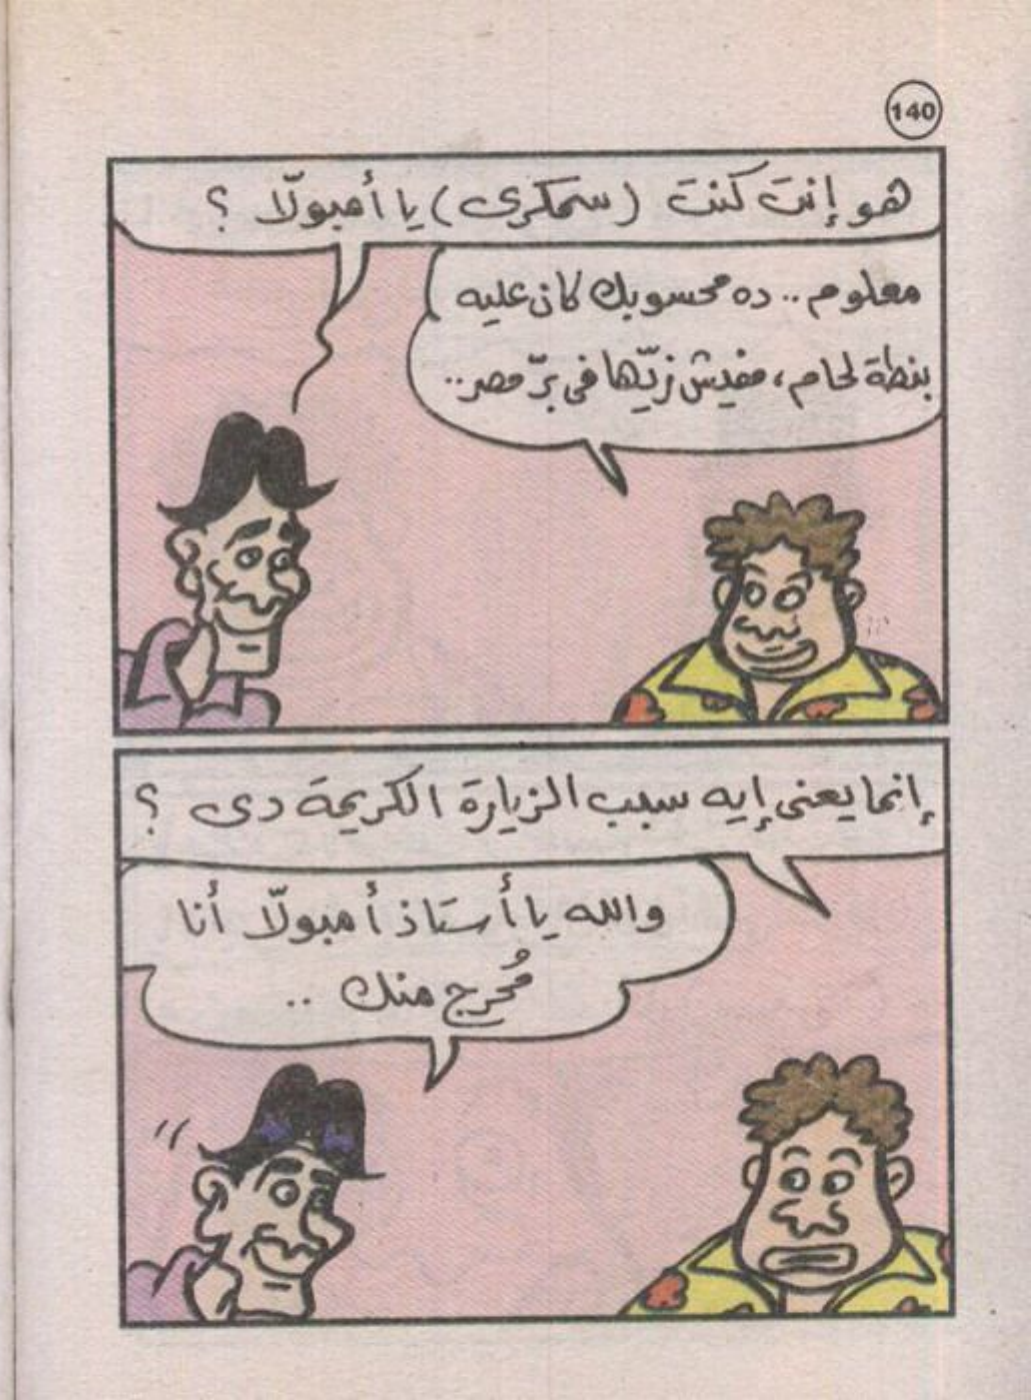 140
هو إنت كنت (سمكرى) يا أمبولّا ؟
معلوم.. ده محسوبك كان عليه
بنطة لحام، مفيش زيّها فى برّ مصر..
إنما يعنى إيه سبب الزيارة الكريمة دى ؟
والله يا أستاذ أمبولّا أنا
مُحرج منك ..